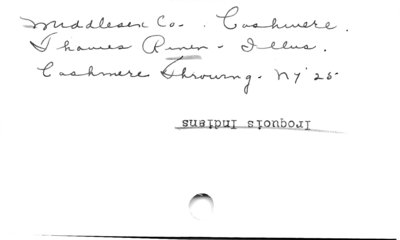 Middlesex Co. . Cashmere.
Thames River - Illus.
Cashmere Throwing. Ny' 25
Iroquois Indians